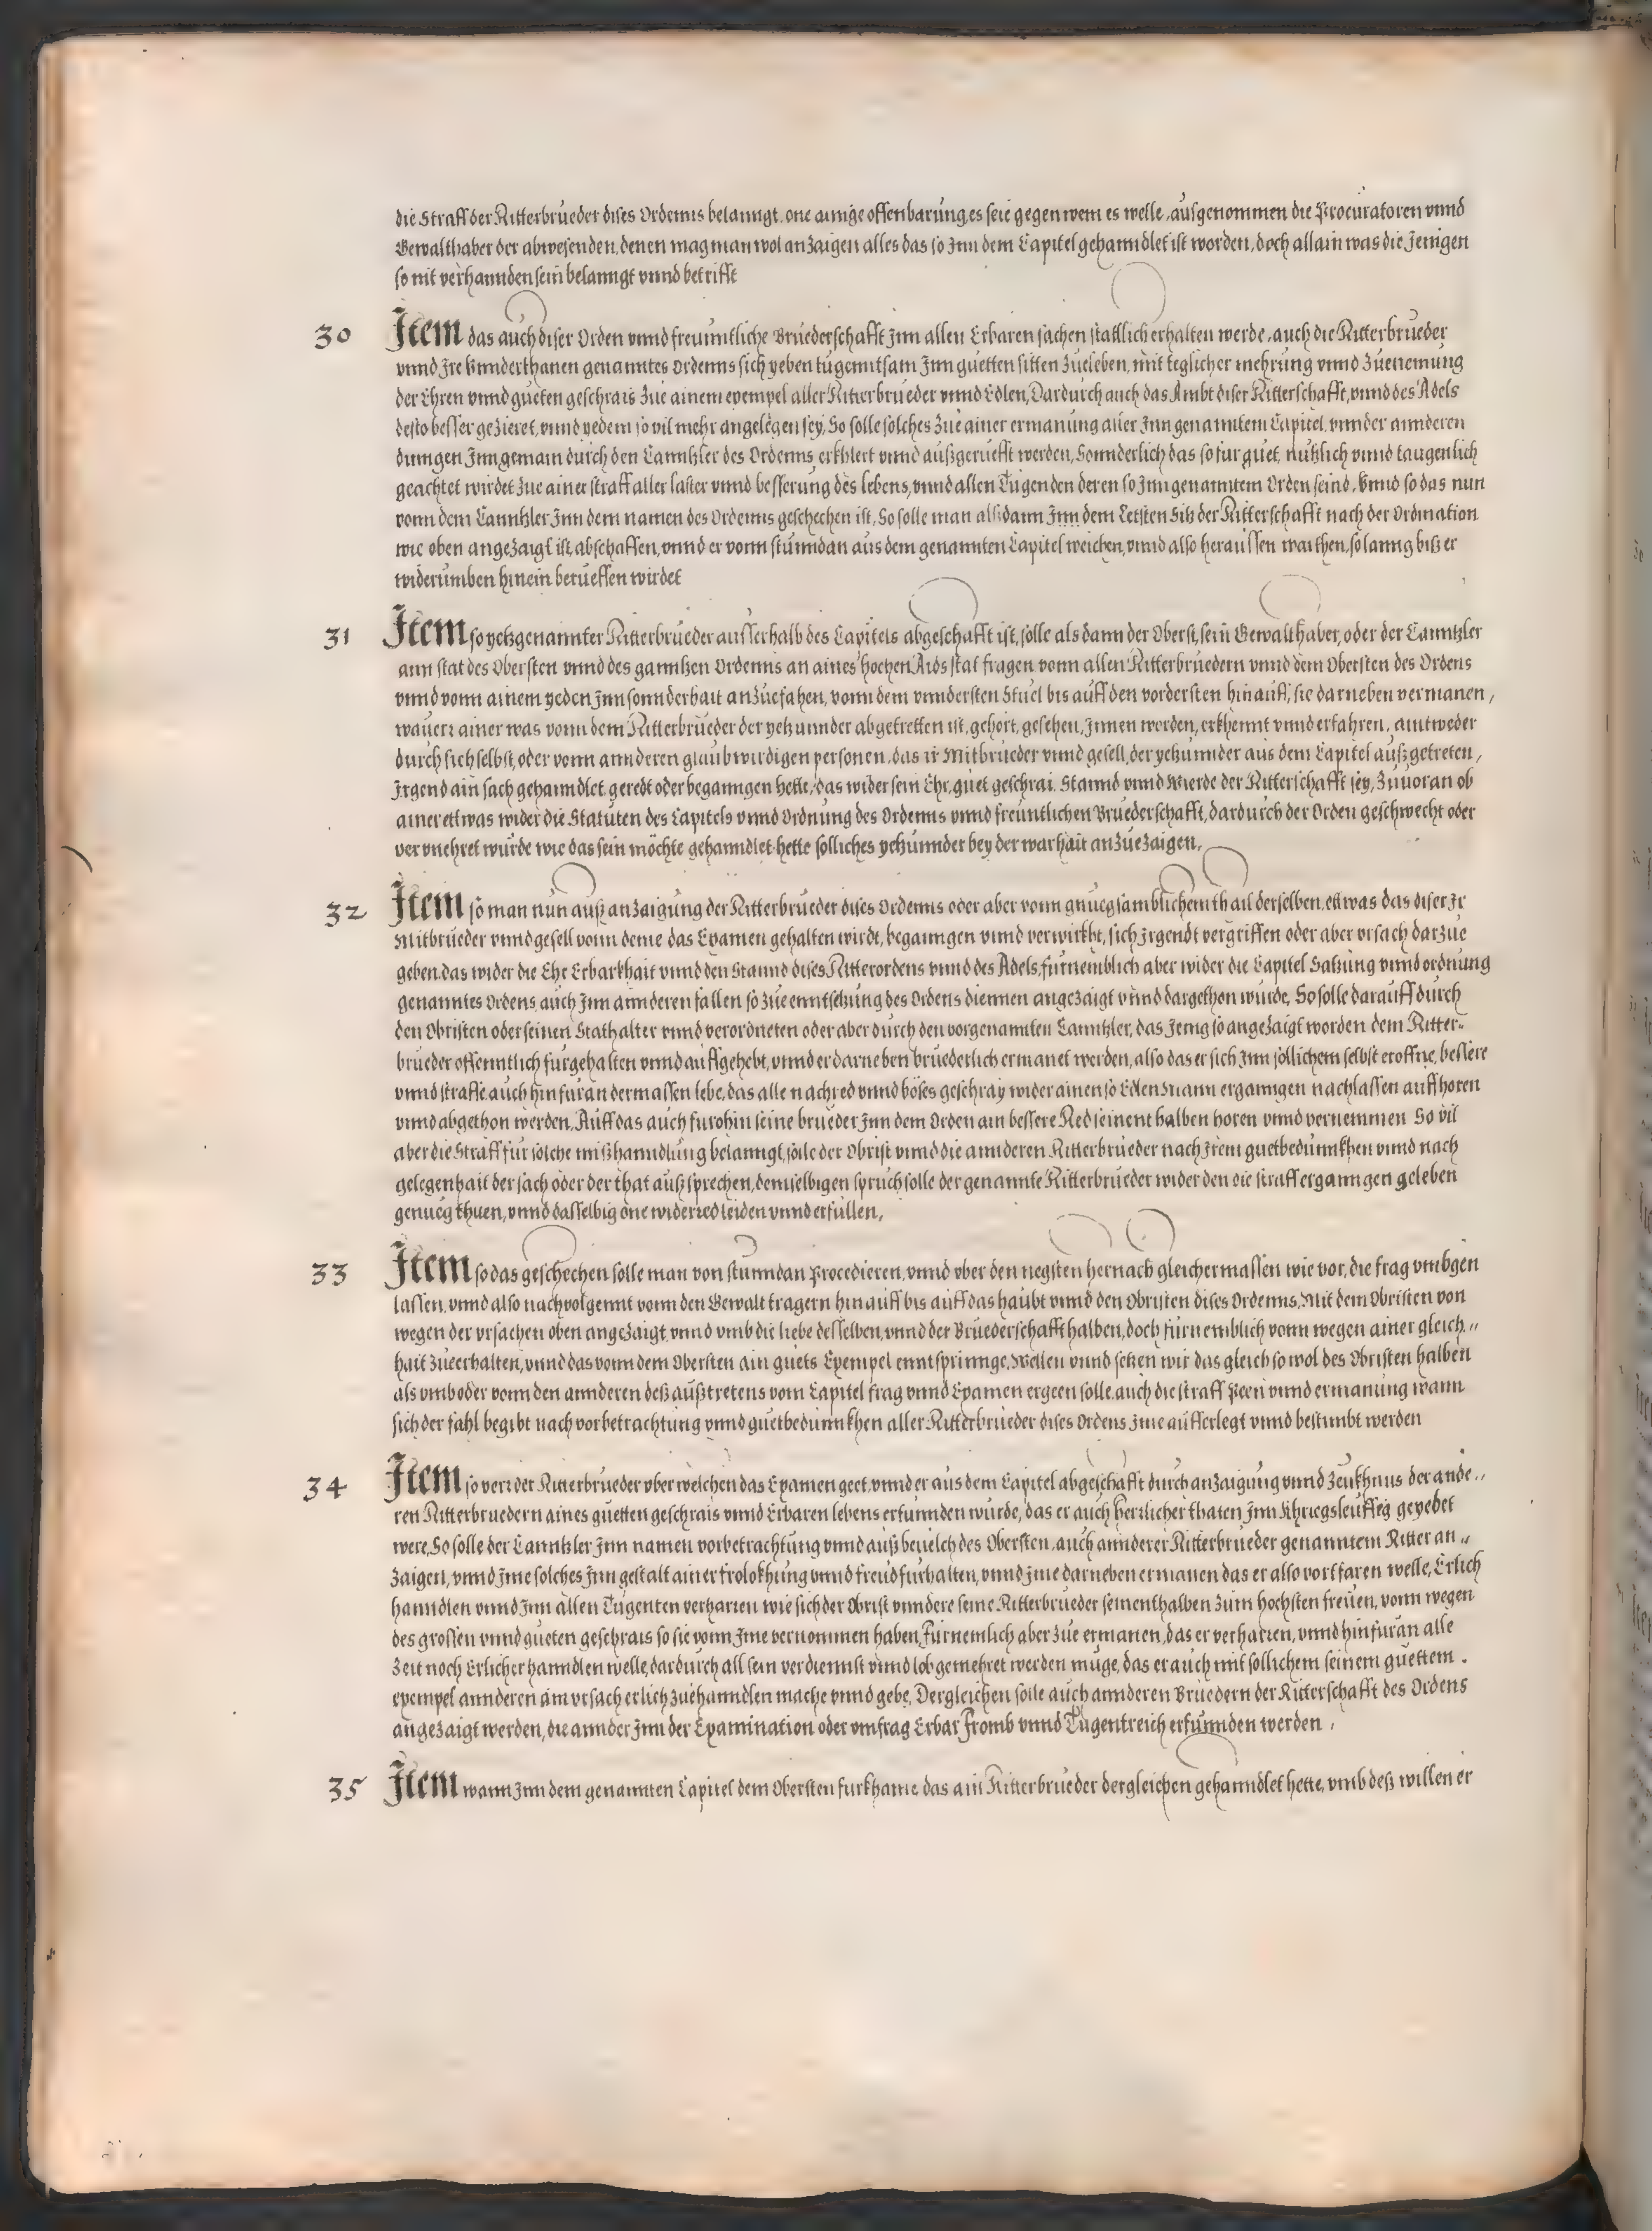 die Straff der Ritterbrüeder dises Ordenns belanngt, one ainige offenbarung, es seie gegen wem es welle, ausgenommen die Procuratoren vnnd
Gewalthaber der abwesenden, denen mag man wol anzaigen alles das so Inn dem Capitel gehanndlet ist worden, doch allain was die Jenigen
so nit verhannden sein belanngt vnnd betrifft
30 Item das auch diser Orden vnnd freundtliche Brüederschafft Inn allen Erbaren sachen statlich erhalten werde, auch die Ritterbrüeder
vnnd Ire vnnderthanen genanntes Ordenns sich yeben tugenntsam Inn guetten sitten zueleben, mit teglicher mehrung vnnd zuenemung
der Ehren vnnd gueten geschrais zue ainem exempel aller Ritterbrüeder vnnd Edlen, Dardurch auch das Ambt diser Ritterschafft, vnnd des Adels
desto besser gezieret, vnnd yedem so vil mehr angelegen sey, So solle solches zue ainer ermanung aller Inn genanntem Capitel, vnnder annderen
dinngen Inn gemain durch den Canntzler des Ordenns erkhlert vnnd außgerüefft werden, Sonnderlich das so für guet, nutzlich vnnd taugenlich
geachtet wirdet zue ainer straff aller laster vnnd besserung des lebens, vnnd allen Tugenden deren so Inn genanntem Orden seind, Vnnd so das nun
vonn dem Canntzler Inn dem namen des Ordenns geschechen ist, So solle man alßdann Inn dem Letsten Sitz der Ritterschafft nach der Ordination
wie oben angezaigt ist abschaffen, vnnd er vonn stunndan aus dem genannten Capitel weichen, vnnd also heraussen warthen, so lanng biß er
widerumben hinein berueffen wirdet
31 Item so yetzgenannter Ritterbrüeder ausserhalb des Capitels abgeschafft ist, solle als dann der Oberst, sein Gewalthaber, oder der Canntzler
ann stat des Obersten vnnd des ganntzen Ordenns an aines hochen Aids stat fragen vonn allen Ritterbrüedern vnnd dem Obersten des Ordens
vnnd vonn ainem yeden Inn sonnderhait anzuefahen, vonn dem vnndersten Stuel bis auff den vordersten hinauff, sie darneben vermanen,
wauerr ainer was vonn dem Ritterbrüeder der yetzunnder abgetretten ist, gehört, gesehen, Innen worden, erkhennt vnnd erfahren, aintweder
durch sich selbst, oder vonn annderen glaubwirdigen personen, das ir Mitbrüeder vnnd gesell, der yetzunnder aus dem Capitel außgetreten,
Irgend ain sach gehanndlet, geredt oder beganngen hette, das wider sein Ehr, guet geschrai, Stannd vnnd Wierde der Ritterschafft sey, Zuuoran ob
ainer ettwas wider die Statuten des Capitels vnnd Ordnung des Ordenns vnnd freuntlichen Brüederschafft, dardurch der Orden geschwecht oder
vervnehret wurde wie das sein möchte gehanndlet hette solliches yetzunnder bey der warhait anzuezaigen,
32 Item so man nun auß anzaigung der Ritterbrüeder dises Ordenns oder aber vonn gnuegsamblichem thail derselben, ettwas das diser Ir
Mitbrüeder vnnd gesell vonn deme das Examen gehalten wirdt, beganngen vnnd verwirkht, sich Irgendt vergriffen oder aber vrsach darzue
geben, das wider die Ehr Erbarkhait vnnd den Stannd dises Ritterordens vnnd des Adels, fürnemblich aber wider die Capitel Satzung vnnd ordnung
genanntes Ordens, auch Inn annderen fallen so zue enntsetzung des Ordens diennen angezaigt vnnd dargethon wurde, So solle darauff durch
den Obristen oder seinen Stathalter vnnd verordneten oder aber durch den vorgenannten Canntzler, das Jenig so angezaigt worden dem Ritter-
brüeder offenntlich fürgehalten vnnd auffgehebt, vnnd er darneben brüederlich ermanet werden, also das er sich Inn sollichem selbst eroffne, bessere
vnnd straffe, auch hinfüran dermassen lebe, das alle nachred vnnd böses geschray wider ainen so Edlen Mann erganngen nachlassen auffhoren
vnnd abgethon werden, Auff das auch furohin seine brüeder Inn dem Orden ain bessere Red seinent halben horen vnnd vernemmen So vil
aber die Straff für solche mißhanndlung belanngt, solle der Obrist vnnd die annderen Ritterbrüeder nach Irem guetbedunnkhen vnnd nach
gelegenhait der sach oder der that außsprechen, demselbigen spruch solle der genannte Ritterbrüeder wider den die straff erganngen geleben
genueg thuen, vnnd dasselbig one widerred leiden vnnd erfüllen,
33 Item so das geschechen solle man von stunndan Procedieren, vnnd vber den negsten hernach gleichermassen wie vor, die frag vmbgen
lassen, vnnd also nachvolgennt vonn den Gewalttragern hinauff bis auff das haubt vnnd den Obristen dises Ordenns, Mit dem Obristen von
wegen der vrsachen oben angezaigt, vnnd vmb die liebe desselben, vnnd der Brüederschafft halben, doch fürnemblich vonn wegen ainer gleich"
hait zueerhalten, vnnd das vonn dem Obersten ain guets Exempel enntsprinnge, Wellen vnnd setzen wir das gleich so wol des Obristen halben
als vmb oder vonn den annderen deß außtretens vom Capitel frag vnnd Examen ergeen solle, auch die straff Peen vnnd ermanung wann
sich der fahl begibt nach vorbetrachtung vnnd guetbedunnkhen aller Ritterbrüeder dises Ordens Ime aufferlegt vnnd bestimbt werden
34 Item so verr der Ritterbrüeder vber welchen das Examen geet, vnnd er aus dem Capitel abgeschafft durch anzaigung vnnd zeukhnus der ande"
ren Ritterbruedern aines guetten geschrais vnnd Erbaren lebens erfunnden wurde, das er auch herrlicher thaten Inn Khriegsleuffeg geyebet
were, So solle der Canntzler Inn namen vorbetrachtung vnnd auß beuelch des Obersten, auch annderer Ritterbrüeder genanntem Ritter an"
zaigen, vnnd Ime solches Inn gestalt ainer frolokhung vnnd freud fürhalten, vnnd Ime darneben ermanen das er also vortfaren welle, Erlich
hanndlen vnnd Inn allen Tugenten verharren wie sich der Obrist vnndere seine Ritterbrüeder seinenthalben zum hochsten freuen, vonn wegen
des grossen vnnd gueten geschrais so sie vonn Ime vernommen haben, Fürnemlich aber zue ermanen, das er verharren, vnnd hinfüran alle
Zeit noch Erlicher hanndlen welle, dardurch all sein verdiennst vnnd lob gemehret werden müge, das er auch mit sollichem seinem guettem .
exempel annderen ain vrsach erlich zuehanndlen mache vnnd gebe, Dergleichen solle auch annderen Brüedern der Ritterschafft des Ordens
angezaigt werden, die annder Inn der Examination oder vmfrag Erbar Fromb vnnd Tugentreich erfunnden werden ,
35 Item wann Inn dem genannten Capitel dem Obersten fürkhame das ain Ritterbrüeder dergleichen gehanndlet hette, vmb deß willen er